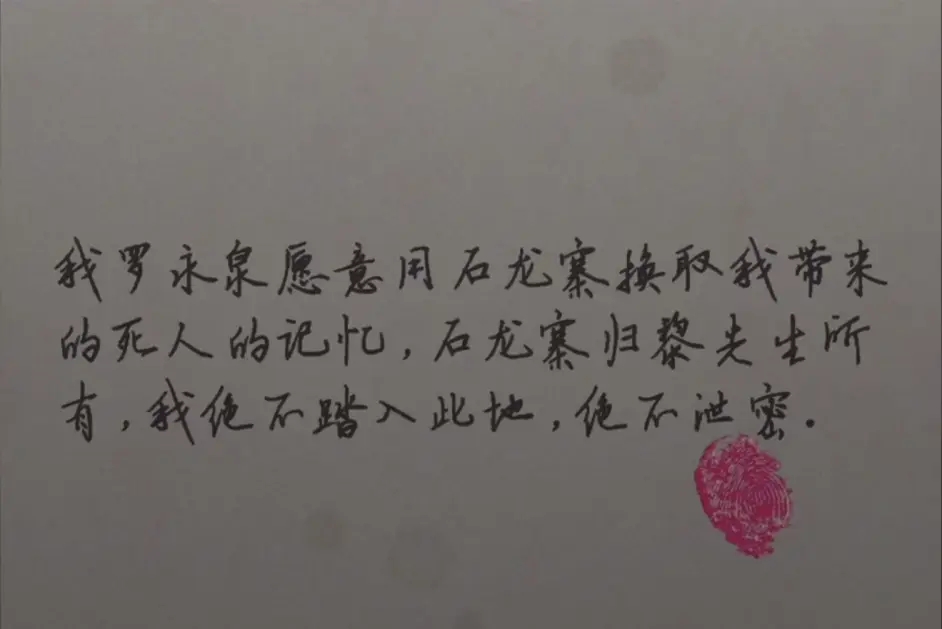 我罗永泉愿意用石龙寨换取我带来
的死人的记忆,石龙寨归黎先生所
有,我绝不踏入此地,绝不泄密.